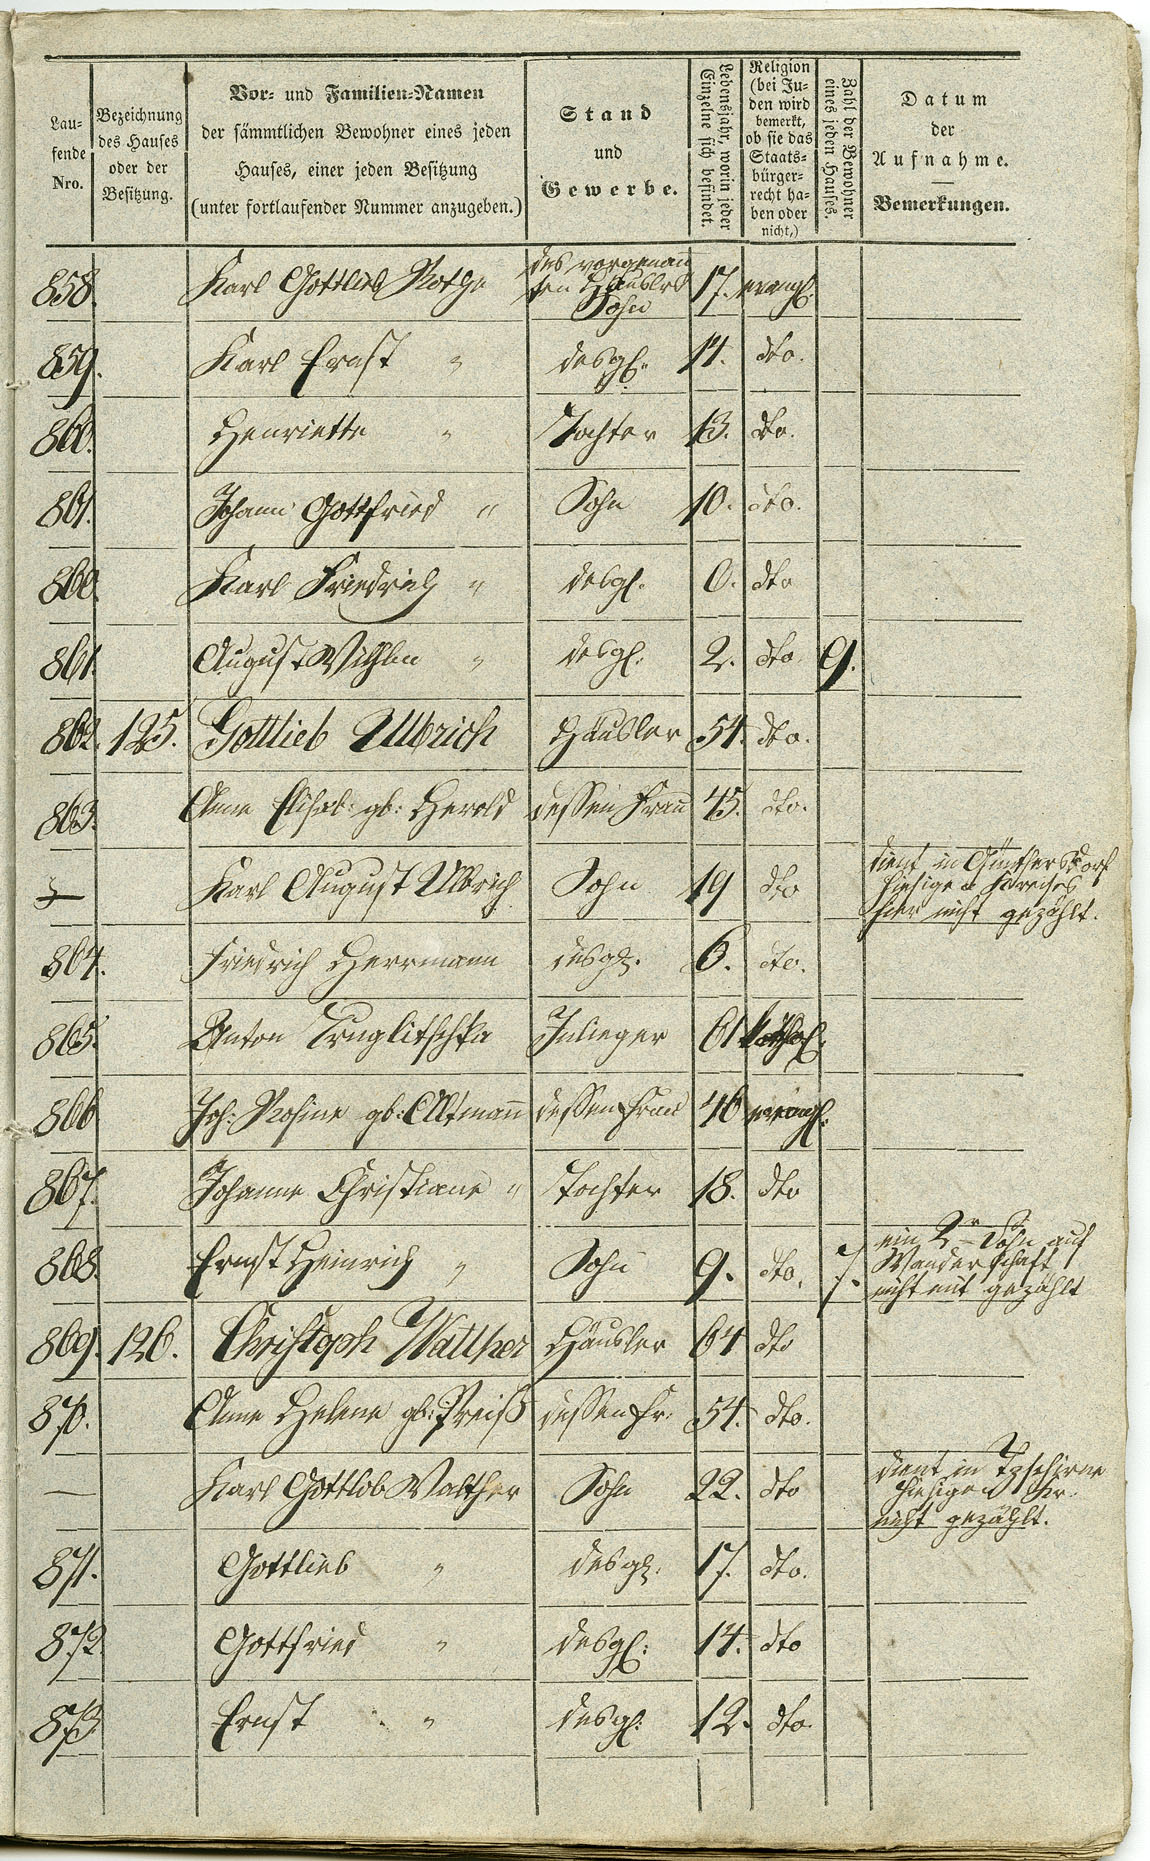 Lau-
fende
Nro.
Bezeichnung
des Hauses
oder der
Besitzung.
Vor- und Familien-Namen
der sämmtlichen Bewohner eines jeden
Hauses, einer jeden Besitzung
(unter fortlaufender Nummer anzugeben.)
Stand
und
Gewerbe.
Lebensjahr, worin jeder
Einzelne sich befindet.
Religion
(bei Ju-
den wird
bemerkt,
ob sie das
Staats-
bürger-
recht ha-
ben oder
nicht.)
Zahl der Bewohner
eines jeden Hauses.
Datum
der
Aufnahme.
Bemerkungen.
858. Karl Gottlieb Rothe des vorgenann
ten Häuslers
Sohn 17. evangl.
859. Karl Ernst " desgl. 14. dto.
860. Henriette " Tochter 13. dto.
861. Johann Gottfried " Sohn 10. dto.
860. Karl Friedrich " desgl. 6. dto
861. August Wilhlm " desgl. 2. dto. 9.
862. 125. Gottlieb Ulbrich Häusler 54. dto.
863. Anne Elisab: gb: Herold dessen Frau 45. dto.
— Karl August Ulbrich Sohn 19 dto dient in Günthersdorf
hiesigen Kreises
hier nicht gezählt.
864. Friedrich Herrmann desgl. 6. dto.
865. Anton Inlieger 61 kathol.
866 Joh: Rosine gb: Altmann dessen Frau 46 evangl.
867. Johanne Christiane " Tochter 18. dto
868. Ernst Heinrich " Sohn 9. dto. 7. ein 2r Sohn auf
Wanderschaft
nicht mit gezählt
869. 126. Christoph Walther Häusler 64 dto
870. Anne Helene gb: Preiß dessen Fr. 54. dto.
— Karl Gottlob Walther Sohn 22. dto dient in Tzschirne
hiesigen Kr.
nicht gezählt.
871. Gottlieb " desgl. 17. dto.
872. Gottfried " desgl: 14. dto
873 Ernst " desgl: 12. dto.